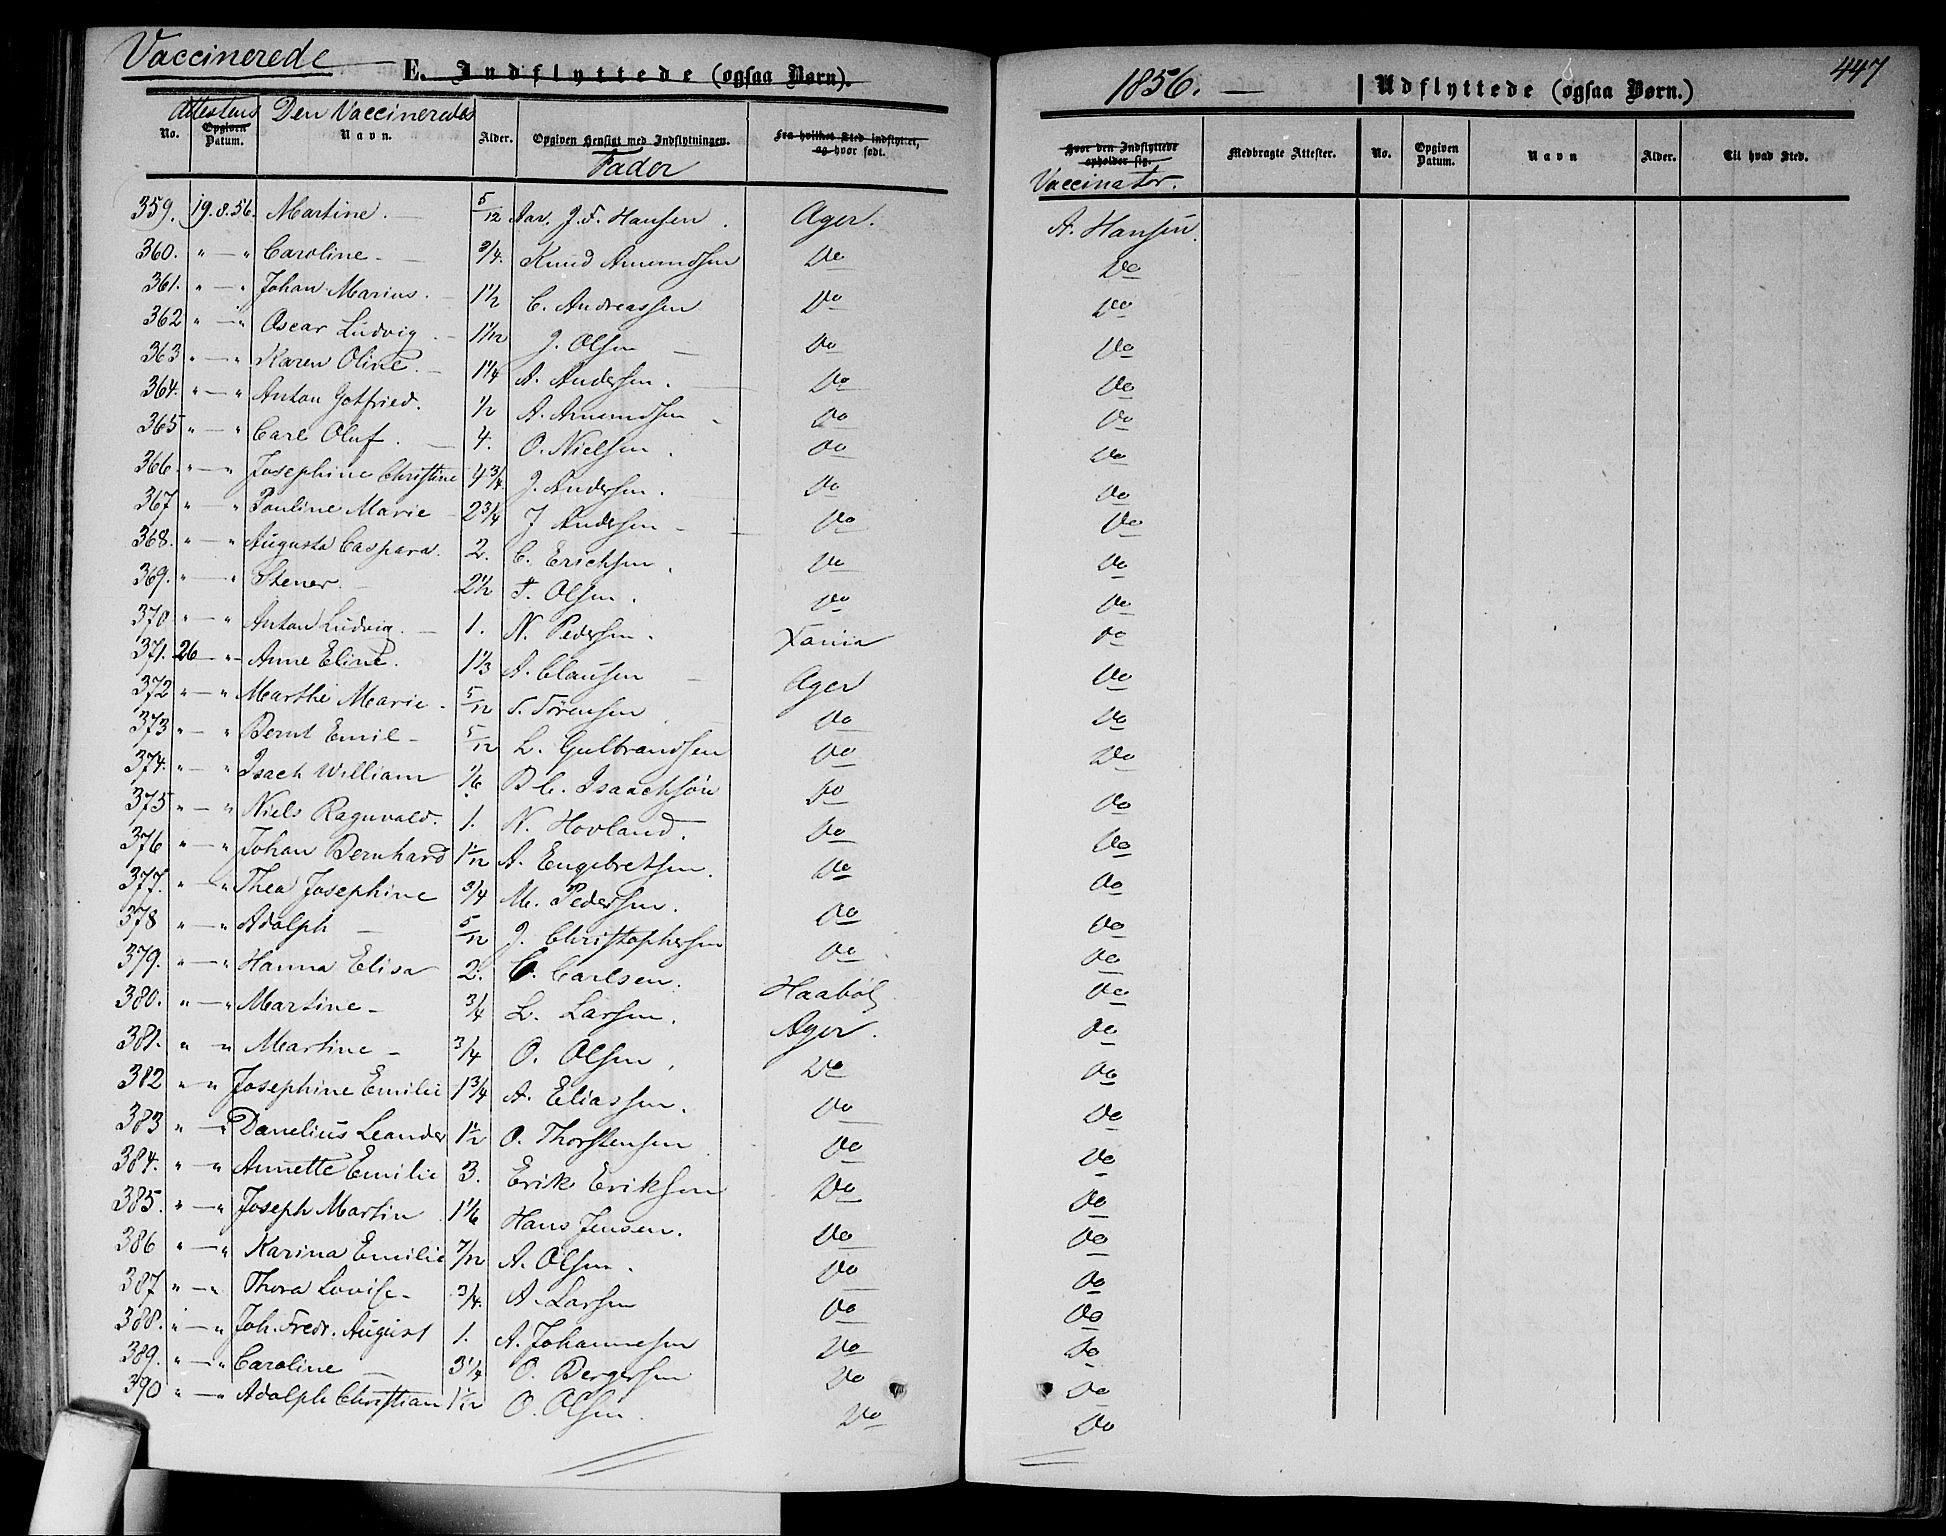 Vaccinerede E. Indflyttede (ogsaa Børn). 1856. — Udflyttede (ogsaa Børn.) 447
No. Attestens Opgiven Datum. Den Vaccineredes Navn. Alder. Opgiven Hensigt med Indflytningen. Fader Fra hvilket Sted indflyttet, og hvor født. Hvor den Indflyttede opholder sig. Vaccinator. Medbragte Attester. No. Opgiven Datum. Navn Alder. Til hvad Sted.
359. 19.8.56. Martine. 5/12 J. F. Hansen Ager. A. Hansen.
360. " — " Caroline. 3/4. Knud Amundsen Do Do
361. " — " Johan Marius. 1 1/2 C. Andreassen Do Do
362 " — " Oscar Ludvig 1 1/12 J. Olsen Do Do
363 " — " Karen Oline. 1 1/4 A. Andersen. Do Do
364. " — " Anton Gotfried. 1/2 A. Amundsen Do Do
365 " — " Carl Oluf. 4. O. Nielsen. Do Do
366. " — " Josephine Christine 4 3/4 J. Andersen. Do Do
367 " — " Pauline Marie 2 3/4 J Andersen Do Do
368. " — " Augusta Caspara. 2. C. Erichsen. Do Do
369. " — " Stener. 2 1/2 T. Olsen. Do Do
370 " — " Anton Ludvig. 1. N. Pedersen. Do
371. 26 — " Anne Eline. 1 1/3 A. Clausen Ager Do
372 " — " Marthe Marie. 5/12 S. Sörensen Do Do
373 " — " Bernt Emil 5/12 L. Gulbrandsen Do Do
374. " — " Isach William 1/6 B C. Isaachsön Do Do
375 " — " Niels Ragnvald. 1. N. Hovland. Do Do
376 " — " Johan Bernhard 1 1/12 A. Engebretsen. Do Do
377. " — " Thea Josephine 3/4 M. Pedersen. Do Do
378 " — " Adolph 5/12 J. Christophersen Do Do
379. " — " Hanna Elisa 2. C. Carlsen. Haaböl Do
380. " — " Martine 3/4 L. Larsen. Ager. Do
381. " " Martine 3/4 O. Olsen. Do Do
382 " " Josephine Emilie 1 3/4 A. Eliassen. Do Do
383 " — " Danelius Leander 1 1/2 O. Thorstensen Do Do
384. " " Annette Emilie 3. Erik Eriksen Do Do
385. " — " Joseph Martin 1 1/6 Hans Jensen. Do Do
386 " — " Karina Emilie 7/12 A. Olsen. Do Do
387 " — " Thora Lovise 3/4. A. Larsen Do Do
388. " — " Joh. Fredr. August 1. A. Johannesen Do Do
389. " — " Caroline 3 1/4 O. Bergersen Do Do
390 " — " Adolph Christian 1 1/12 O. Olsen. Do Do